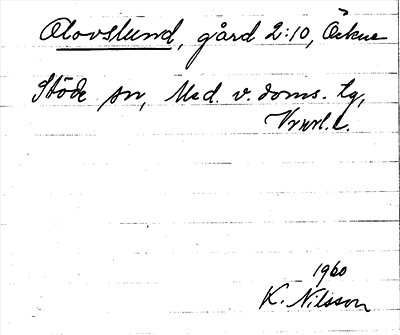 Olovslund, gård 2:10, Öskne
Stöde sn, Med. v. doms. tg,
Vnrl. l.
1960
K. Nilsson